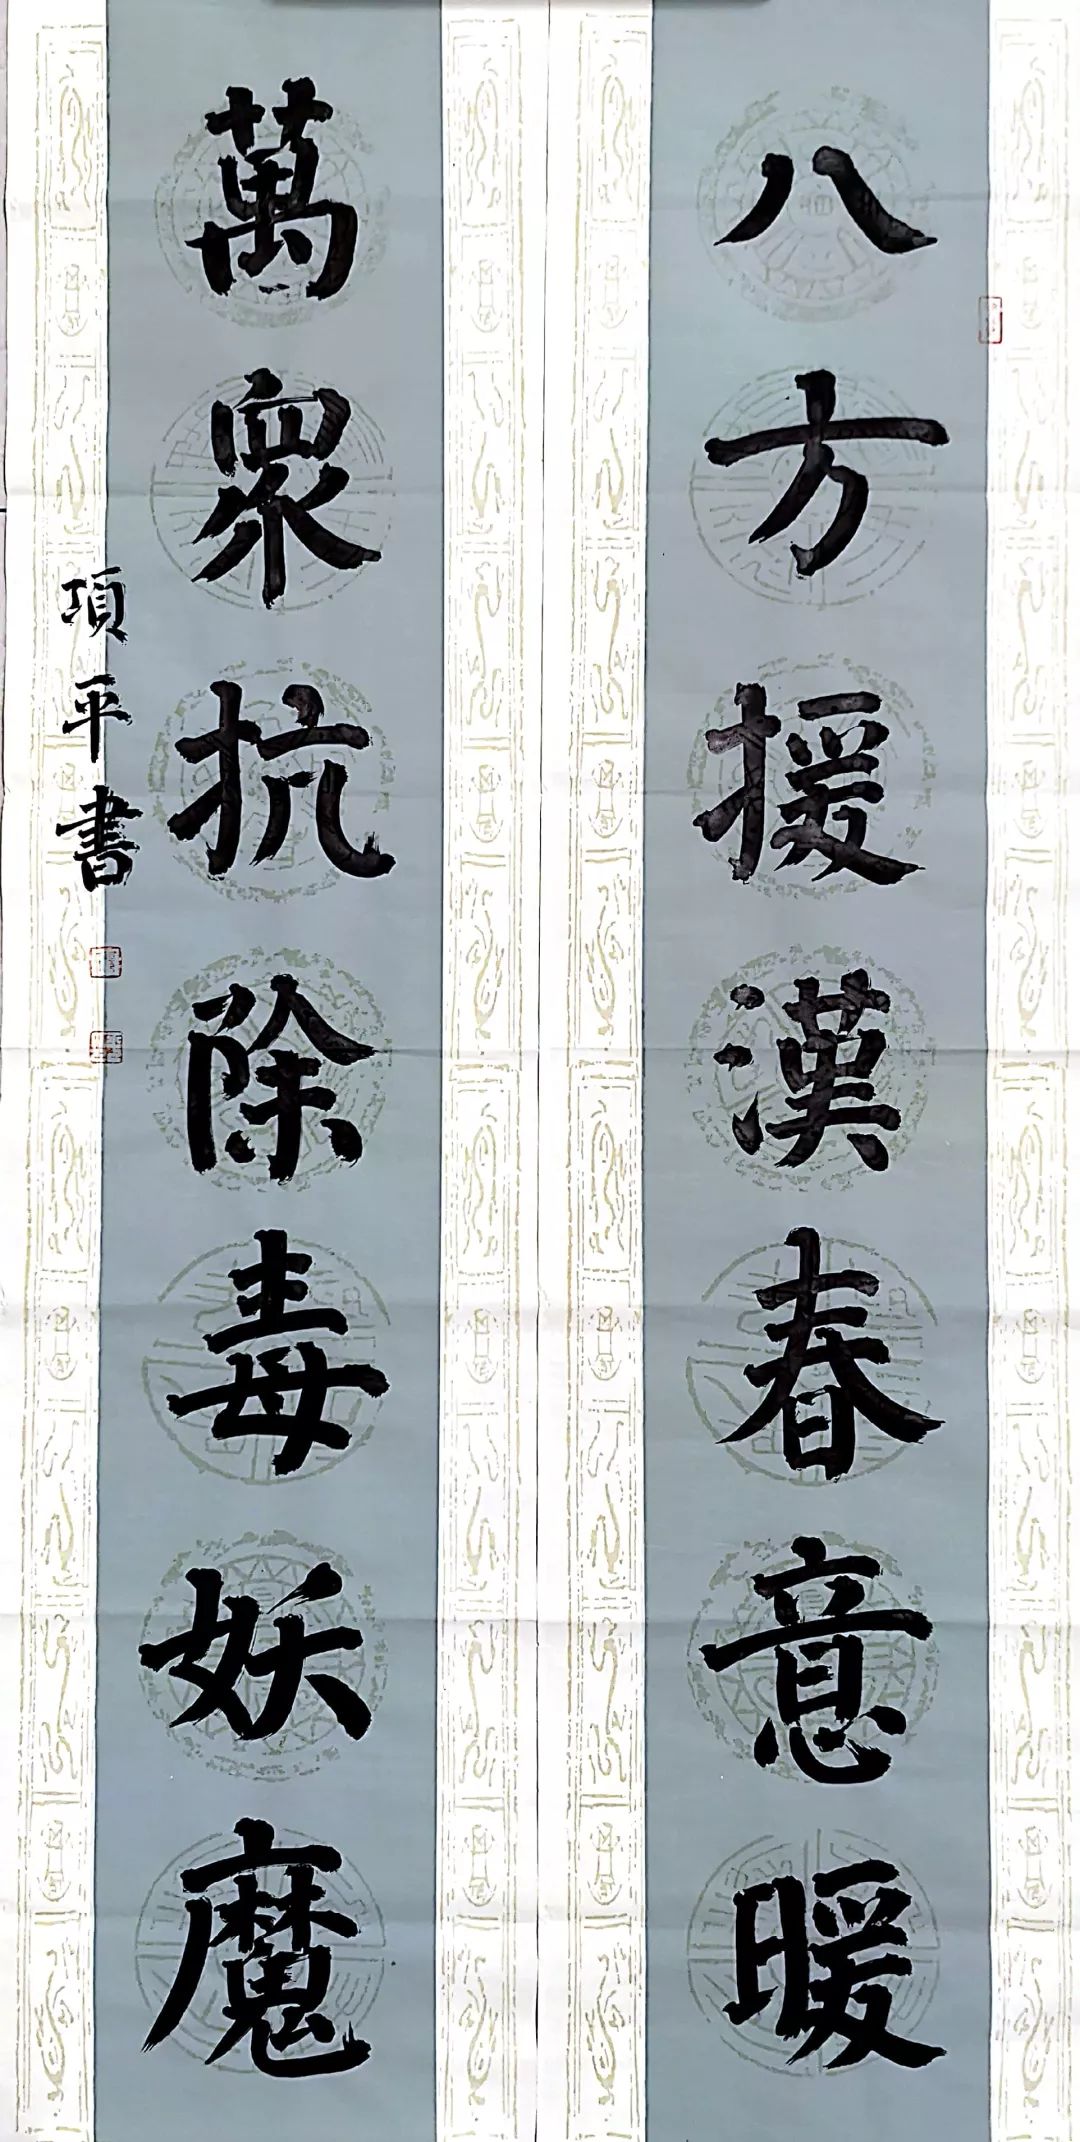 八方援漢春意暖
萬眾抗除毒妖魔
項平書